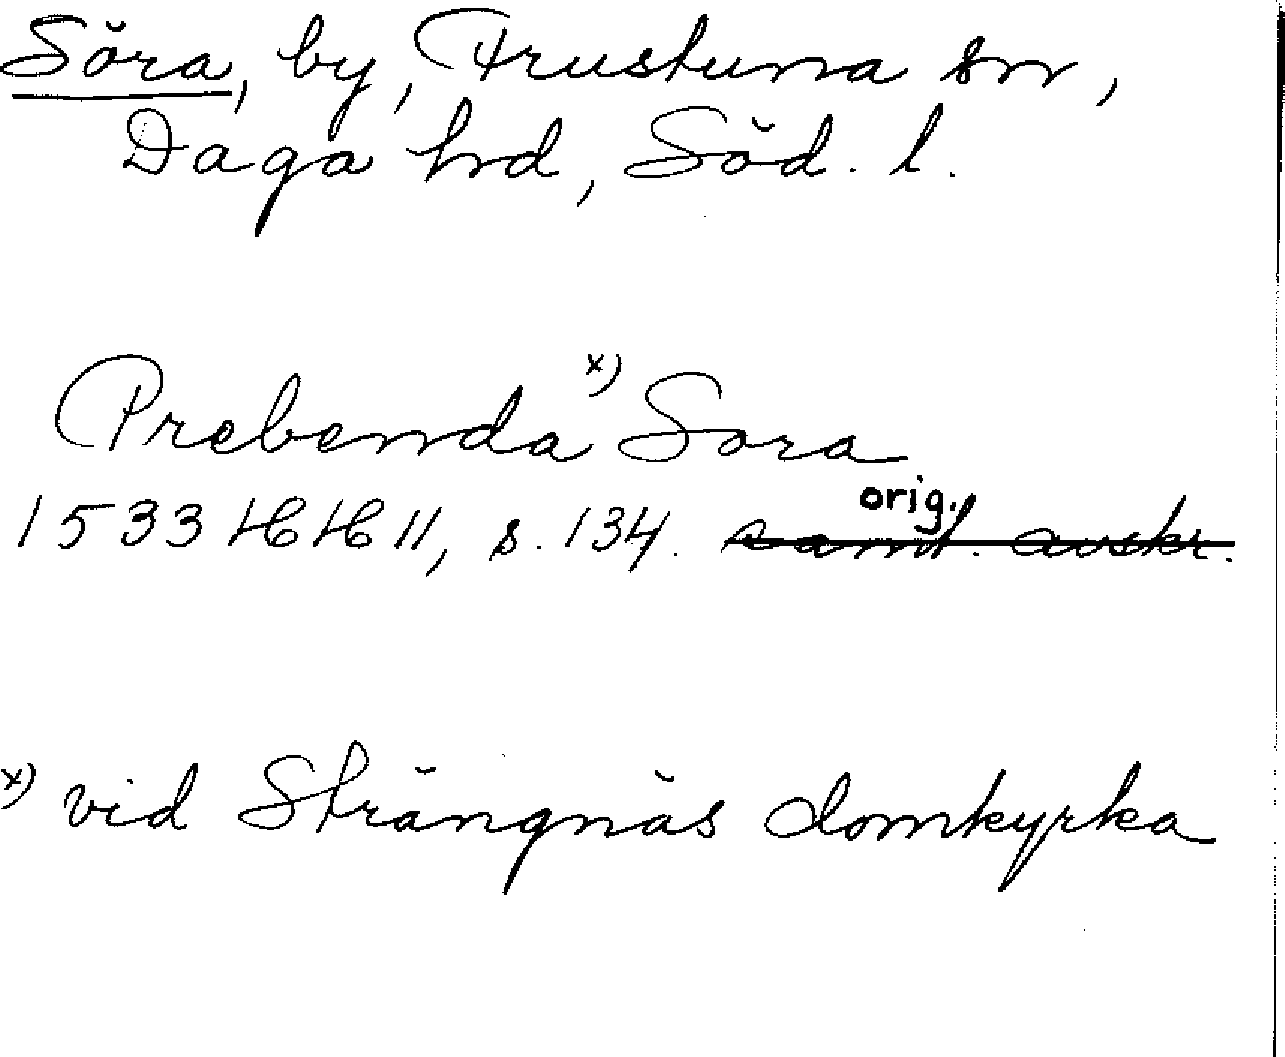 Söra, by, Frustuna sn,
Daga hd, Söd. l.
Prebenda x) Sora
1533 HH 11, s. 134. orig. samt. avskr.
x) vid Strängnäs domkyrka